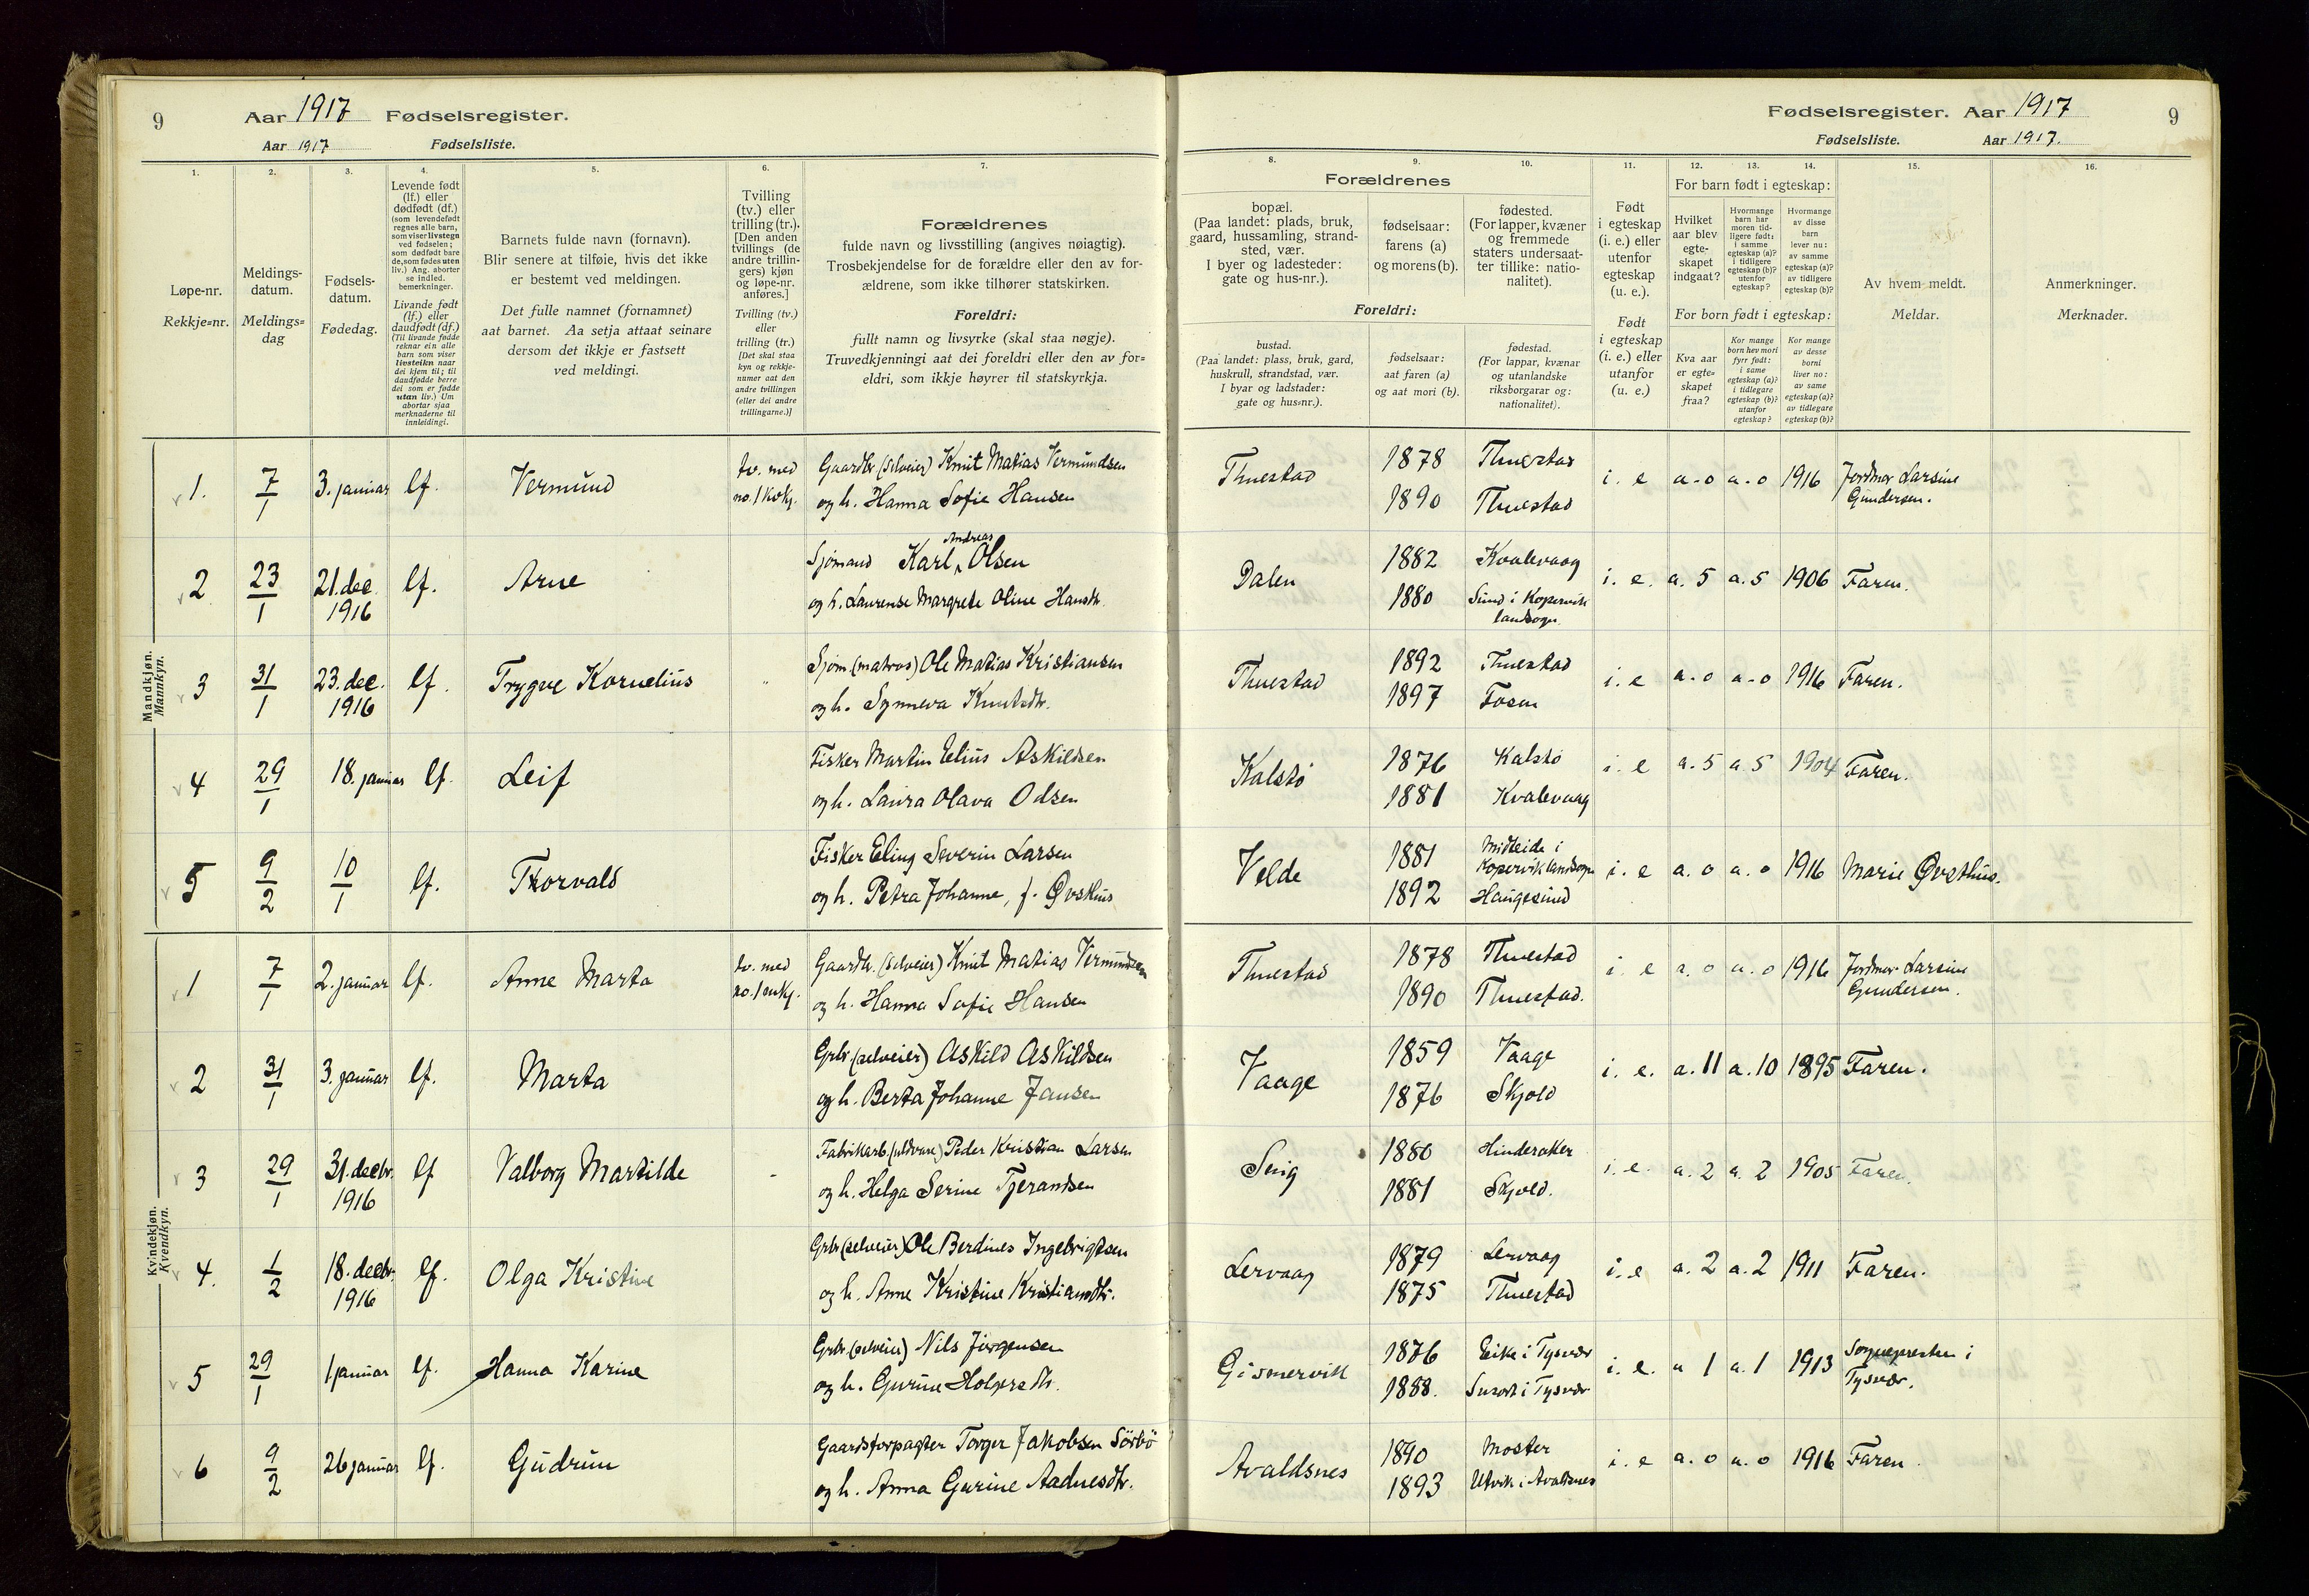 9
Aar 1917 Fødselsregister.
Aar 1917 Fødselsliste.
Fødselsregister. Aar 1917
9
Fødselsliste. Aar 1917.
1.
Løpe-nr.
Rekkje=nr.
2.
Meldings-
datum.
Meldings=
dag
3.
Fødsels-
datum.
Fødedag.
4.
Levende født
(lf.) eller
dødfødt (df.)
(som levendefødt
regnes alle barn,
som viser livstegn
ved fødselen;
som dødfødt bare
de, som fødes uten
liv.) Ang. aborter
se indled.
bemerkninger.
Livande født
(lf.) eller
daudfødt (df.)
(Til livande fødde
reknar ein alle
barn som viser
livsteikn naar
dei kjem til; til
daudfødde berre
dei som er fødde
utan liv.) Um
abortar sjaa
merknaderne til
innleidingi.
5.
Barnets fulde navn (fornavn).
Blir senere at tilføie, hvis det ikke
er bestemt ved meldingen.
Det fulle namnet (fornamnet)
aat barnet. Aa setja attaat seinare
dersom det ikkje er fastsett
ved meldingi.
6.
Tvilling
(tv.) eller
trilling (tr.).
[Den anden
tvillings (de
andre trillin-
gers) kjøn
og løpe-nr.
anføres.]
Tvilling (tv.)
eller
trilling (tr.)
[Det skal staa
kyn og rekkje-
numer aat den
andre tvillingen
(eller dei andre
trillingarne.)]
7.
Forældrenes
fulde navn og livsstilling (angives nøiagtig).
Trosbekjendelse for de forældre eller den av for-
ældrene, som ikke tilhører statskirken.
Foreldri:
fullt namn og livsyrke (skal staa nøgje).
Truvedkjenningi aat dei foreldri eller den av for=
eldri, som ikkje høyrer til statskyrkja.
8.
Forældrenes
bopæl.
(Paa landet: plads, bruk,
gaard, hussamling, strand-
sted, vær.
I byer og ladesteder:
gate og hus-nr.).
Foreldri:
bustad.
(Paa landet: plass, bruk, gard,
huskrull, strandstad, vær.
I byar og ladstader:
gate og hus=nr.).
9.
fødselsaar:
farens (a)
og morens (b).
fødselsaar:
aat faren (a)
og aat mori (b).
10.
fødested.
(For lapper, kvæner
og fremmede
staters undersaat-
ter tillike: natio-
nalitet).
fødestad.
(For lappar, kvænar
og utanlandske
riksborgarar og:
nationalitet).
11.
Født
i egteskap
(i. e.) eller
utenfor
egteskap
(u. e.).
Født
i egteskap
(i. e.) eller
utanfor
egteskap
(u. e.)
12. 13. 14.
For barn født i egteskap:
Hvilket
aar blev
egte-
skapet
indgaat?
Hvormange
barn har
moren tid-
ligere født:
i samme
egteskap (a)?
i tidligere
egteskap (b)?
utenfor
egteskap?
Hvormange
av disse
barn
lever nu:
av samme
egteskap (a)?
av tidligere
egteskap (b)?
For born født i egteskap:
Kva aar
er egte=
skapet
fraa?
Kor mange
born hev mori
fyrr født:
i same
egteskap (a)?
i tidlegare
egteskap (b)?
utanfor
egteskap?
Kor mange
av desse
borni
liver no:
av same
egteskap (a)?
av tidlegare
egteskap (b)?
15.
Av hvem meldt.
Meldar.
16.
Anmerkninger.
Merknader.
Mandkjøn.
Mannkyn.
1. 7/1 3. januar lf. Vermund tv. med no. 1 kvkj. Gaardbr. (selveier) Knut Matias Vermundsen
og h. Hanna Sofie Hansen
Thuestad 1878 Thuestad i. e a. 0 a. 0 1916 Jordmor Larsine
1890 Thuestad Gundersen.
2 23/1 21. dec. 1916 lf. Arne Sjømand Karl Andreas Olsen
og h. Laurense Margrete Oline Hansdtr.
Dalen 1882 Kvalevaag i. e. a. 5 a. 5 1906 Faren.
1880 Sund i Kopervik
landsogn.
3 31/1 23. dec. 1916 lf. Trygve Kornelius Sjøm. (matros) Ole Matias Kristiansen
og h. Synneva Knutsdtr.
Thuestad 1892 Thuestad i. e a. 0 a. 0 1916 Faren.
1897 Fosen
4 29/1 18. januar lf. Leif Fisker Martin Elius Askildsen
og h. Laura Olava Olsen
Kalstø 1876 Kalstø i. e a. 5 a. 5 1904 Faren.
1881 Kvalevaag
5 9/2 10/1 lf. Thorvald Fisker Eling Severin Larsen
og h. Petra Johanne, f. Øvsthus
Velde 1881 Midteide i
Kopervik landsogn i. e a. 0 a. 0 1916 Marie Øvsthus.
1892 Haugesund
Kvindekjøn.
Kvendkyn.
1 7/1 2. januar lf. Anne Marta tv. med no. 1 mkj. Gaardbr. (selveier) Knut Matias Vermundsen
og h. Hanna Sofie Hansen
Thuestad 1878 Thuestad i. e a. 0 a. 0 1916 Jordmor Larsine
1890 Thuestad. Gundersen.
2 31/1 3. januar lf. Marta Grbr. (selveier) Askild Askildsen
og h. Berta Johanne Jansen
Vaage 1859 Vaage i. e. a. 11 a. 10 1895 Faren.
1876 Skjold
3 29/1 31. decbr. 1916 lf Valborg Martilde Fabrikarb. (uldvare) Peder Kristian Larsen
og h. Helga Serine Tjerandsen
1880 Hinderaker i. e. a. 2 a. 2 1905 Faren.
1881 Skjold.
4. 1/2 18. decbr. 1916 lf. Olga Kristine Grbr (selveier) Ole Berdines Ingebrigtsen
og h. Anne Kristine Kristiansdtr.
Lervaag 1879 Lervaag i. e a. 2 a. 2 1911 Faren.
1875 Thuestad
5 29/1 1 januar lf. Hanna Karine Grbr. (selveier) Nils Jørgensen
og h. Gurine
Gismervik 1876 Eike i Tysvær i. e. a 1 a. 1 1913 Sognepresten i
1888. i Tysvær Tysvær.
6 9/2 26 januar lf. Gudrun Gaardsforpagter Torger Jakobsen Sörbö
og h. Anna Gurine Aadnesdtr.
Avaldsnes 1890 Moster i. e a. 0 a. 0 1916 Faren
1893 Utvik i Avaldsnes